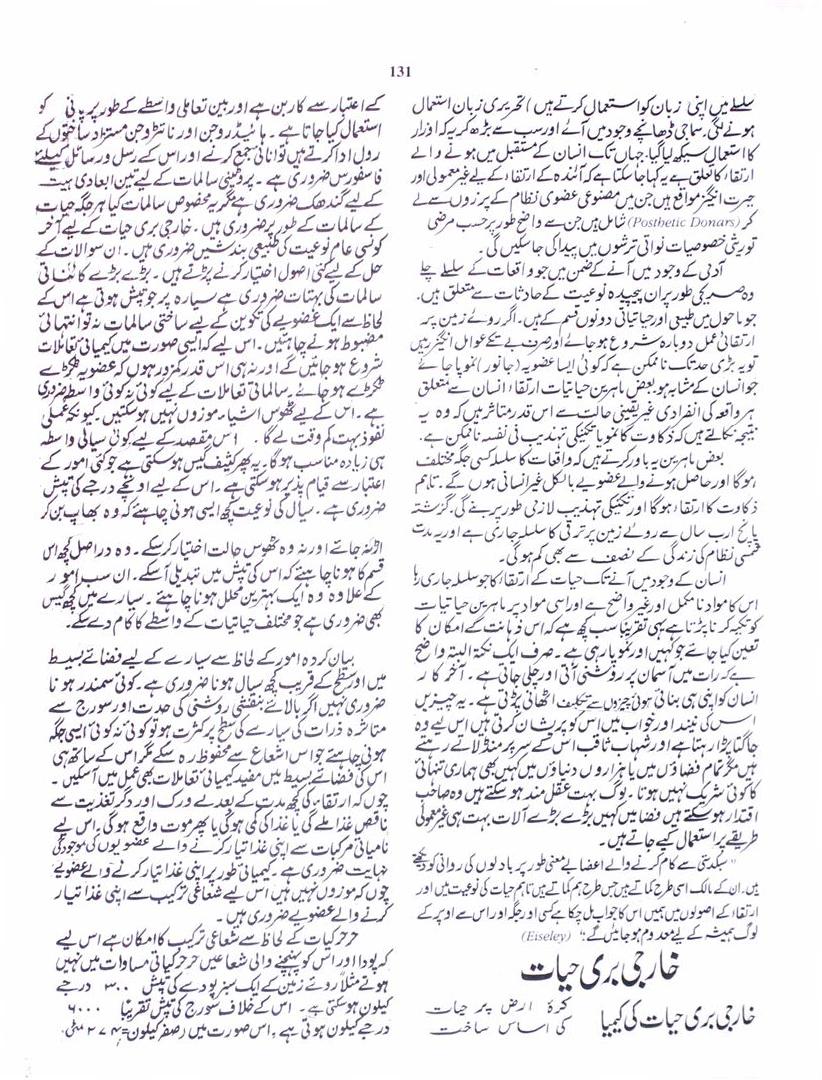 131
سلسلے میں اپنی زبان کو استعمال کرتے ہیں) تحریری زبان استعمال
ہونے لگی۔ سماجی ڈھانچے وجود میں آئے اور سب سے بڑھ کر یہ کہ اوزار
کا استعمال سیکھ لیا گیا۔ جہاں تک انسان کے مستقبل میں ہونے والے
ارتقاء کا تعلق ہے یہ کہا جا سکتا ہے کہ آئندہ کے ارتقاء کے لیے غیر معمولی اور
حیرت انگیز مواقع ہیں جن میں مصنوعی عضوی نظام کے پرزوں سے لے
کر (Posthetic Donars) شامل ہیں جن سے واضح طور پر حسب مرضی
توریثی خصوصیات نواتی ترشوں میں پیدا کی جا سکیں گی۔
آدمی کے وجود میں آنے کے ضمن میں جو واقعات کے سلسلے چلے
وہ صریحی طور پر ان پیچیدہ نوعیت کے حادثات سے متعلق ہیں۔
جو ماحول میں طبیعی اور حیاتیاتی دونوں قسم کے ہیں۔ اگر روئے زمین پر
ارتقائی عمل دوبارہ شروع ہو جائے اور صرف بے تکے عوامل انگیز ہیں
تو یہ بڑی حد تک ناممکن ہے کہ کوئی ایسا عضویہ (جانور) نمو پا جائے
جو انسان کے مشابہ ہو بعض ماہرین حیاتیات ارتقاء انسان سے متعلق
ہر واقعہ کی انفرادی غیر یقینی حالت سے اس قدر متاثر ہیں کہ وہ یہ
نتیجہ نکالتے ہیں کہ ذکاوت کا نمو یا تکنیکی تہذیب فی نفسہ ناممکن ہے۔
بعض ماہرین یہ باور کرتے ہیں کہ واقعات کا سلسلہ کسی جگہ مختلف
ہوگا اور حاصل ہونے والے عضویے بالکل غیر انسانی ہوں گے۔ تاہم
ذکاوت کا ارتقاء ہوگا اور تکنیکی تہذیب لازمی طور پر بنے گی۔ گزشتہ
پانچ ارب سال سے روئے زمین پر ترقی کا سلسلہ جاری ہے اور یہ مدت
شمسی نظام کی زندگی کے نصف سے بھی کم ہوگی۔
انسان کے وجود میں آنے تک حیات کے ارتقاء کا جو سلسلہ جاری رہا
اس کا مواد نامکمل اور غیر واضح ہے اور اسی مواد پر ماہرین حیاتیات
کو تکیہ کرنا پڑتا ہے یہی تقریباً سب کچھ ہے کہ اس ذہانت کے امکان کا
تعین کیا جائے جو کہیں اور نمو پا رہی ہے۔ صرف ایک نکتۃ البتہ واضح
ہے کہ رات میں آسمان پر روشنی آتی اور چلی جاتی ہے۔ آخر کار
انسان کو اپنی ہی بنائی ہوئی چیزوں سے تکلیف اٹھانی پڑتی ہے۔ یہ چیزیں
اس کی نیند اور خواب میں اس کو پریشان کرتی ہیں اس لیے وہ
جاگتا پڑا رہتا ہے اور شہاب ثاقب اس کے سر پر منڈلاتے رہتے
ہیں مگر تمام فضاؤں میں یا ہزاروں دنیاؤں میں کہیں بھی ہماری تنہائی
کا کوئی شریک نہیں ہوتا۔ لوگ بہت عقل مند ہو سکتے ہیں وہ صاحب
اقتدار ہو سکتے ہیں فضا میں کہیں بڑے بڑے آلات بہت ہی غیر معمولی
طریقے پر استعمال کیے جاتے ہیں۔
"سبکدستی سے کام کرنے والے اعضا بے معنی طور پر بادلوں کی روانی کو دیکھتے
ہیں۔ ان کے مالک اسی طرح کماتے ہیں جس طرح ہم کماتے ہیں تاہم حیات کی نوعیت میں اور
ارتقاء کے اصولوں میں ہمیں اس کا جواب مل چکا ہے کسی اور جگہ اور اس سے اوپر کے
لوگ ہمیشہ کے لیے معدوم ہو جائیں گے۔" (Eiseley)
خارجی بری حیات
خارجی بری حیات کی کیمیا
کرۂ ارض پر حیات
کی اساس ساخت
کے اعتبار سے کاربن ہے اور بین تعاملی واسطے کے طور پر پانی کو
استعمال کیا جاتا ہے۔ ہائیڈروجن اور نائٹروجن مستزاد ساختوں کے
رول ادا کرتے ہیں توانائی جمع کرنے اور اس کے رسل و رسائل کیلئے
فاسفورس ضروری ہے۔ پروٹینی سالمات کے لیے تین ابعادی ہیت
کے لیے گندھک ضروری ہے مگر یہ مخصوص سالمات کیا ہر جگہ حیات
کے سالمات کے طور پر ضروری ہیں۔ خارجی بری حیات کے لیے آخر
کونسی عام نوعیت کی طبیعی بندشیں ضروری ہیں۔ ان سوالات کے
حل کے لیے کئی اصول اختیار کرنے پڑتے ہیں۔ بڑے بڑے کائناتی
سالمات کی بہتات ضروری ہے سیارہ پر جو تپش ہوتی ہے اس کے
لحاظ سے ایک عضویے کی تکوین کے لیے ساختی سالمات نہ تو انتہائی
مضبوط ہونے چاہئیں۔ اس لیے کہ ایسی صورت میں کیمیائی تعاملات
شروع ہو جائیں گے اور نہ ہی اس قدر کمزور ہوں کہ عضویہ ٹکڑے
ٹکڑے ہو جائے۔ سالماتی تعاملات کے لیے کوئی نہ کوئی واسطہ ضروری
ہے۔ اس کے لیے ٹھوس اشیاء موزوں نہیں ہو سکتیں۔ کیونکہ عملی
نفوذ بہت کم وقت لے گا۔ اس مقصد کے لیے کوئی سیالی واسطہ
ہی زیادہ مناسب ہوگا۔ یہ پھر کثیف گیس ہو سکتی ہے جو کئی امور کے
اعتبار سے قیام پذیر ہو سکتی ہے۔ اس کے لیے اونچے درجے کی تپش
ضروری ہے۔ سیال کی نوعیت کچھ ایسی ہونی چاہئے کہ وہ بھاپ بن کر
اڑ نہ جائے اور نہ وہ ٹھوس حالت اختیار کر سکے۔ وہ دراصل کچھ اس
قسم کا ہونا چاہیئے کہ اس کی تپش میں تبدیلی آ سکے۔ ان سب امور
کے علاوہ وہ ایک بہترین محلل ہونا چاہئے۔ سیارے میں کچھ گیس
بھی ضروری ہے جو مختلف حیاتیات کے واسطے کا کام دے سکے۔
بیان کردہ امور کے لحاظ سے سیارے کے لیے فضائے بسیط
میں اور سطح کے قریب کچھ سیال ہونا ضروری ہے۔ کوئی سمندر ہونا
ضروری نہیں اگر بالائے بنفشی روشنی کی حدت اور سورج سے
متاثرہ ذرات کی سیارے کی سطح پر کثرت ہو تو کوئی نہ کوئی ایسی جگہ
ہونی چاہئے جو اس اشعاع سے محفوظ رہ سکے مگر اس کے ساتھ ہی
اس کی فضائے بسیط میں مفید کیمیائی تعاملات بھی عمل میں آ سکیں۔
چوں کہ ارتقاء کی کچھ مدت کے بعد بے ورک اور دگر تغذیت سے
ناقص غذا ملے گی یا غذا کی کمی ہوگی یا پھر موت واقع ہوگی۔ اس لیے
نامیاتی مرکبات سے اپنی غذا تیار کرنے والے عضویوں کی موجودگی
نہایت ضروری ہے۔ کیمیائی طور پر اپنی غذا تیار کرنے والے عضویے
چوں کہ موزوں نہیں ہیں اس لیے شعاعی ترکیب سے اپنی غذا تیار
کرنے والے عضویے ضروری ہیں۔
حر حرکیات کے لحاظ سے شعاعی ترکیب کا امکان ہے اس لیے
کہ پودا اور اس کو پہنچنے والی شعاعیں حر حرکیاتی مساوات میں نہیں
ہوتے مثلاً روئے زمین کے ایک سبز پودے کی تپش ۳۰۰ درجے
کیلون ہو سکتی ہے۔ اس کے خلاف سورج کی تپش تقریباً ۶۰۰۰
درجے کیلون ہوتی ہے۔ اس صورت میں (صفر کیلون = ۲۷۳